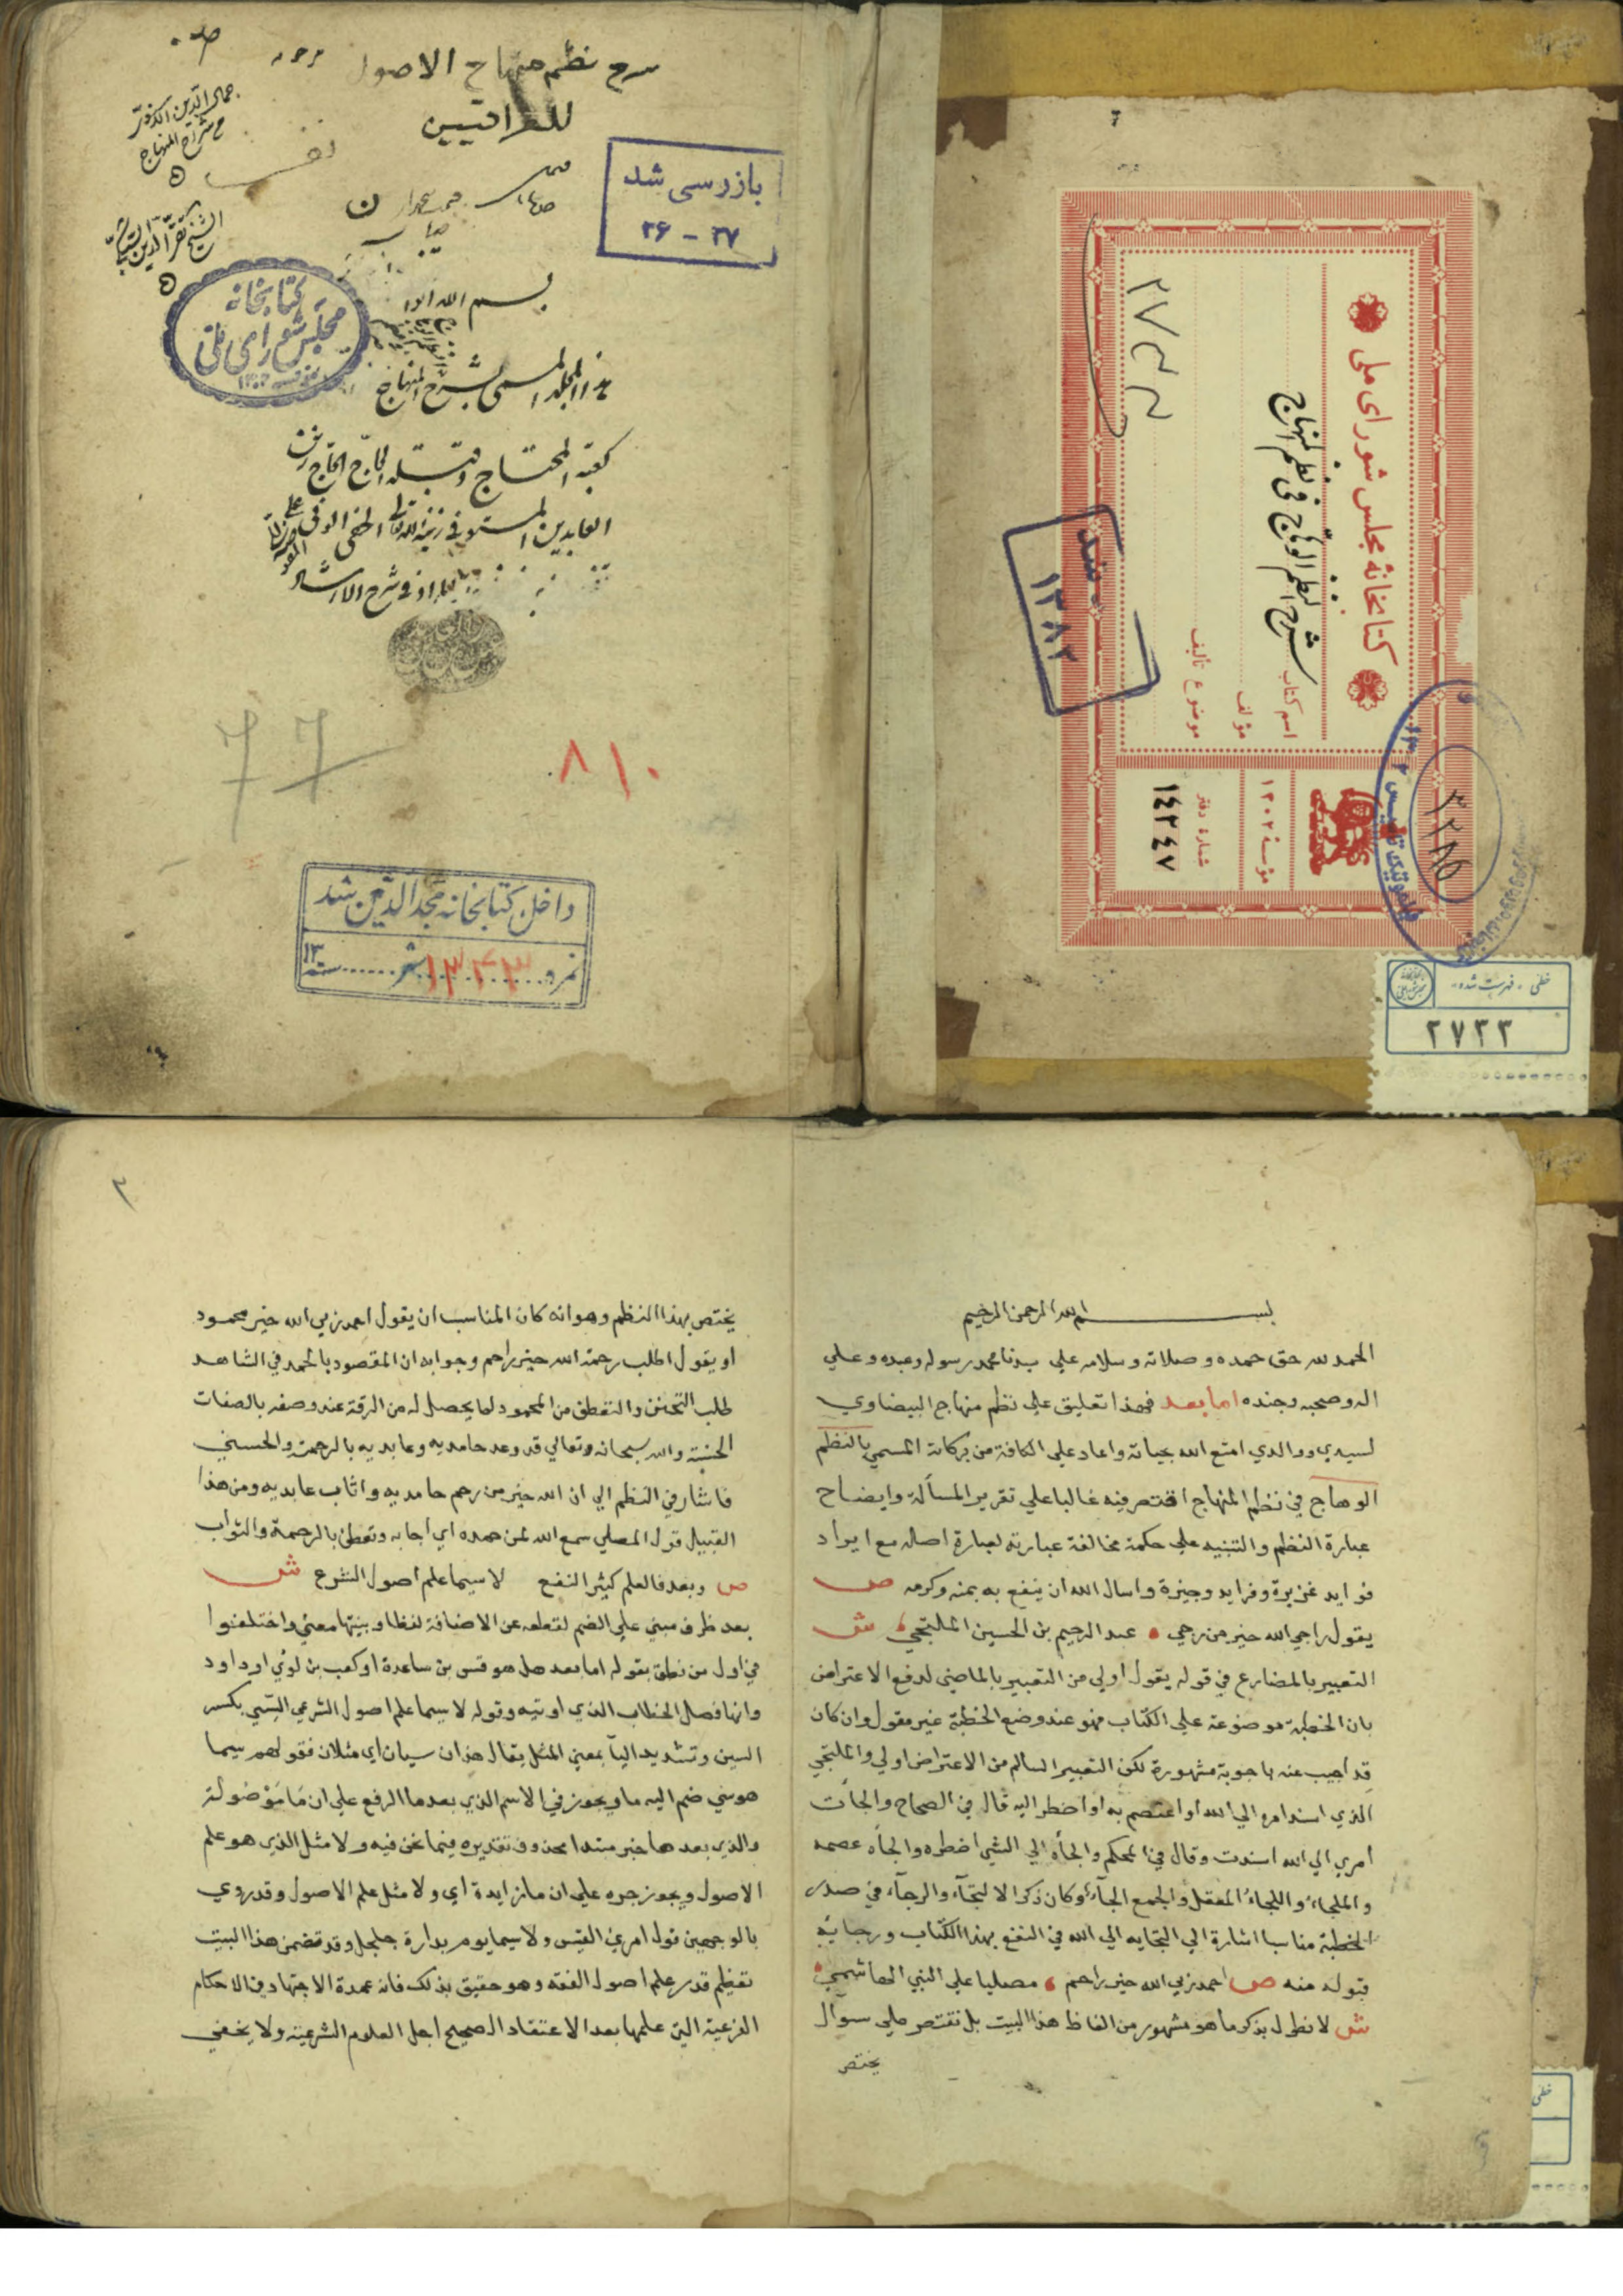 شرح نظم منهاج الاصول
للعراقيين
جمال الدين
شراح المنهاج
بازرسی شد
۳۶ - ۳۷
بسم الله
كتابخانه
مجلس شورای ملی
هذا المجلد المسمى بشرح المنهاج
كعبة المحتاج وقبلة
العابدين
في شرح
۸۱۰
داخل کتابخانه مجد الدین شد
نمره ۱۳۴۳ شهر سنه ۱۳
کتابخانهٔ مجلس شورای ملی
اسم کتاب شرح النظم الوهاج فی نظم المنهاج
مؤلف
موضوع تألیف
مؤسسه ۱۳۰۲
شماره دفتر
١٤٢٤٧
شد
۱۳۸۲
خطی - فهرست شده
۲۷۳۳
بسم الله الرحمن الرحيم
الحمد لله حق حمده وصلاته وسلامه علي سيدنا محمد رسوله وعبده وعلي
اله وصحبه وجنده اما بعد فهذا تعليق علي نظم منهاج البيضاوي
لسيدي ووالدي امتع الله بحياته واعاد علي الكافة من بركاته المسمي بالنظم
الوهاج في نظم المنهاج اقتصر فيه غالبا علي تقرير المسألة وايضاح
عبارة النظم والتنبيه علي حكمة مخالفة عبارته لعبارة اصله مع ايراد
فوايد غزيرة وفرايد وجيزة واسال الله ان ينفع به بمنه وكرمه ص
يقول راجي الله خير من رجي عبد الرحيم بن الحسين الملتجي ش
التعبير بالمضارع في قوله يقول اولي من التعبير بالماضي لدفع الاعتراض
بان الخطبة موضوعة علي الكتاب فهو عند وضع الخطبة غير مقول وان كان
قد اجيب عنه باجوبة مشهورة لكن التعبير السالم من الاعتراض اولي والملتجي
الذي اسند امره الي الله او اعتصم به او اضطر اليه قال في الصحاح والجأت
امري الي الله اسندت وقال في المحكم والجأه الي الشي اضطره والجأه عصمه
والملجاء واللجاء المعقل والجمع الجآء وكان ذكر الالتجآء والرجآء في صدر
الخطبة مناسبا اشارة الي التجايه الي الله في النفع بهذا الكتاب ورجايه
قبوله منه ص احمد ربي الله خير راحم مصليا علي النبي الهاشمي
ش لا نطول بذكر ما هو مشهور من الفاظ هذا البيت بل نقتصر علي سوال
يختص
٢
يختص بهذا النظم وهو انه كان المناسب ان يقول احمد ربي الله خير محمود
او يقول اطلب رحمة الله خير راحم وجوابه ان المقصود بالحمد في الشاهد
طلب التحنن والتعطف من المحمود لما يحصل له من الرقة عند وصفه بالصفات
الحسنة والله سبحانه وتعالي قد وعد حامديه وعابديه بالرحمة والحسني
فاشار في النظم الي ان الله خير من رحم حامديه واثاب عابديه ومن هذا
القبيل قول المصلي سمع الله لمن حمده اي اجابه وتعطف بالرحمة والثواب
ص وبعد فالعلم كثير النفع لا سيما علم اصول الشرع ش
بعد ظرف مبني علي الضم لقطعه عن الاضافة لفظا ونيتها معني واختلفوا
في اول من نطق بقوله اما بعد هل هو قس بن ساعدة او كعب بن لؤي او داود
وانها فصل الخطاب الذي اوتيه وقوله لا سيما علم اصول الشرع السي بكسر
السين وتشديد اليآ بمعني المثل يقال هذان سيان اي مثلان فقولهم سيما
هو سي ضم اليه ما ويجوز في الاسم الذي بعدها الرفع علي ان ما موصولة
والذي بعدها خبر مبتدا محذوف تقديره فيما نحن فيه ولا مثل الذي هو علم
الاصول ويجوز جره علي ان ما زايدة اي ولا مثل علم الاصول وقد روي
بالوجهين قول امرئ القيس ولا سيما يوم بدارة جلجل وقد تضمن هذا البيت
تعظيم قدر علم اصول الفقه وهو حقيق بذلك فانه عمدة الاجتهاد في الاحكام
الفرعية التي علمها بعد الاعتقاد الصحيح اجل العلوم الشرعية ولا يخفي